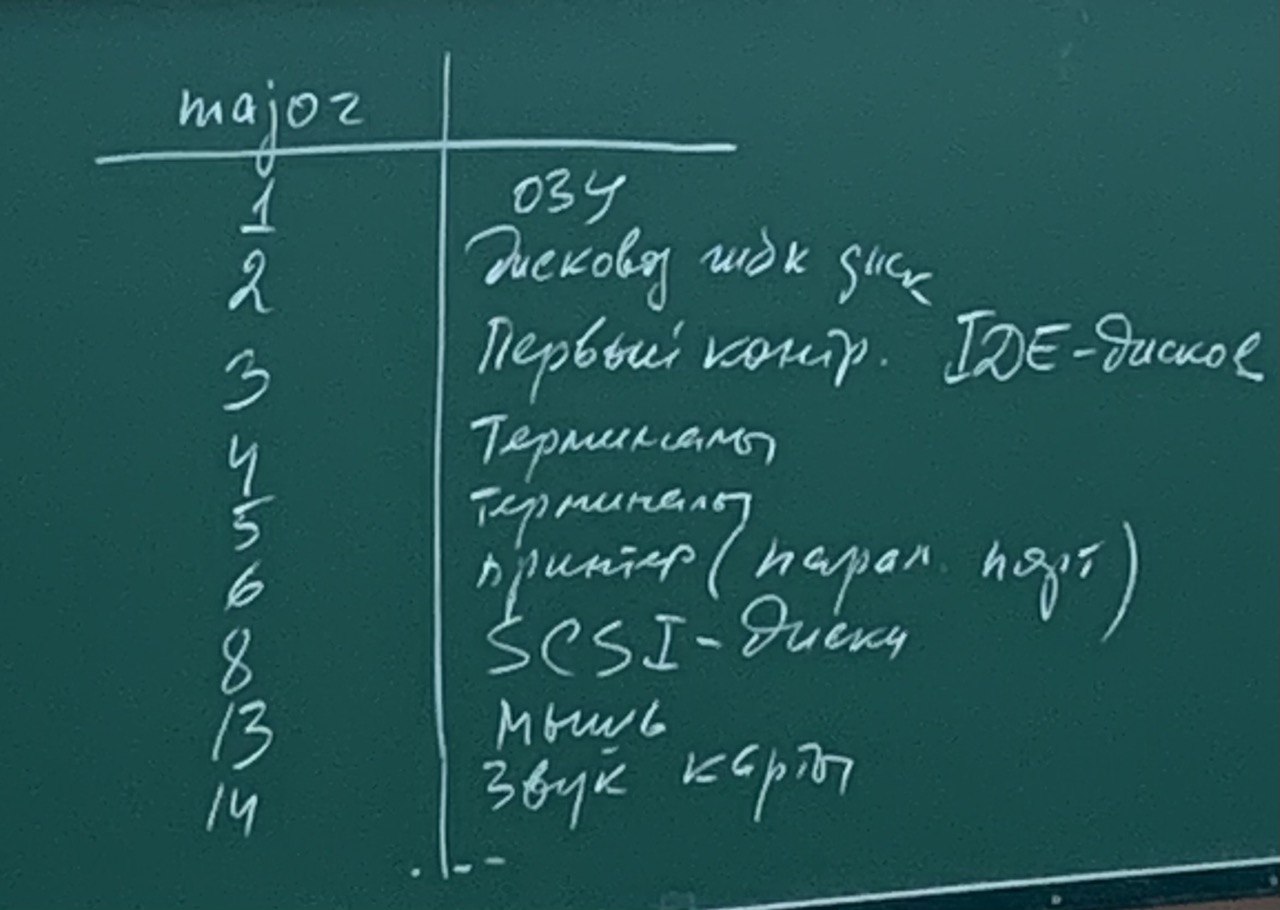 major
1 ОЗУ
2 Дисковод гибк диск
3 Первый контр. IDE-дисков
4 Терминалы
5 терминалы
6 принтер (парал. порт)
8 SCSI-диски
13 мышь
14 Звук карты
...